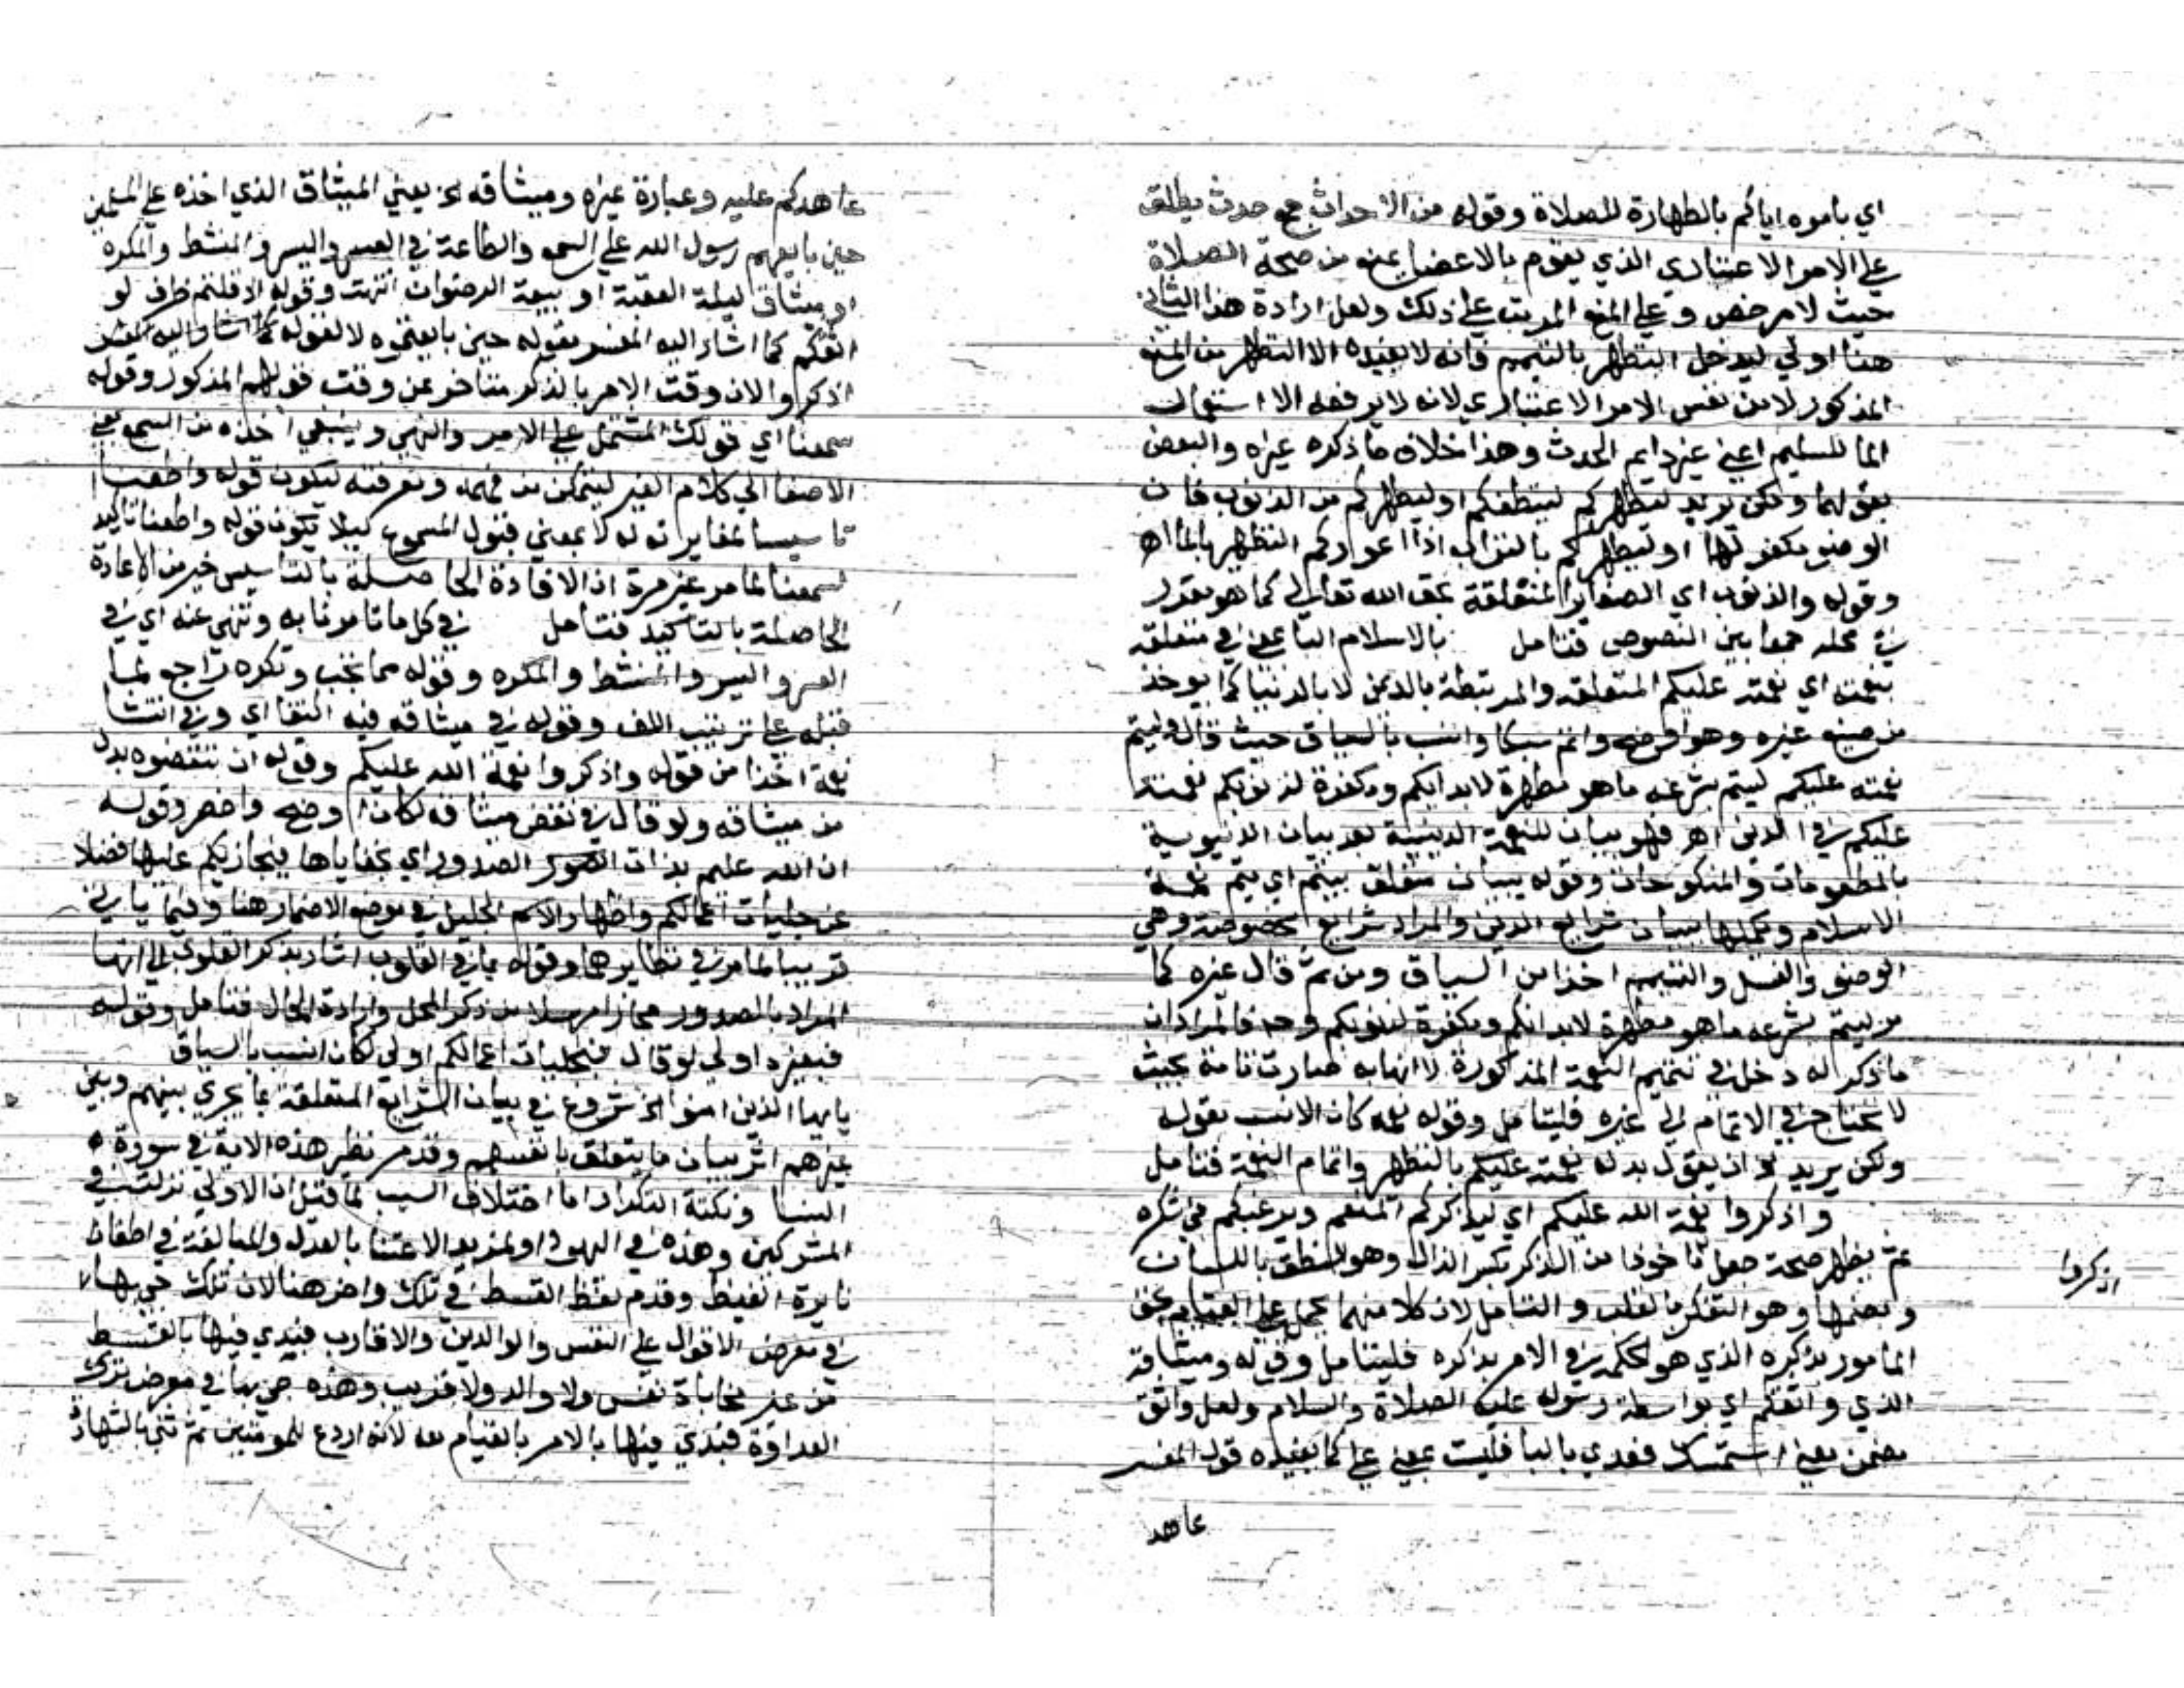 اي بامره اياكم بالطهارة للصلاة وقوله من الاحداث جمع حدث يطلق
على الامر الاعتباري الذي يقوم بالاعضا يمنع من صحة الصلاة
حيث لا مرخص وعلى المنع المرتب على ذلك ولعل ارادة هذا الثاني
هنا اولى ليدخل التطهر بالتيمم فانه لا يفيده الا التطهر من المنع
المذكور لا من نفس الامر الاعتباري لانه لا يرفعه الا استعمال
الما للسليم اعني غير دايم الحدث وهذا خلاف ما ذكره غيره والبعض
بقولهما ولكن يريد ليطهركم لينظفكم او ليطهركم من الذنوب فان
الوضو يكفر لها او ليطهركم بالتراب اذا اعوزكم التطهر بالما اهـ
وقوله والذنوب اي الصغاير المتعلقة بحق الله تعالى كما هو مقرر
في محله جمعا بين النصوص فتامل بالاسلام الباعث في متعلقه
بنعمته اي نعمته عليكم المتعلقة والمرتبطة بالدين لا بالدنيا كما يوخذ
من صنيع غيره وهو اوضح واتم سبكا وانسب بالسياق حيث قال وليتم
نعمته عليكم ليتم بشرعه ما هو مطهرة لابدانكم ومكفرة لذنوبكم نعمته
عليكم في الدين اهـ فهو بيان للنعمة الدينية بعد بيان الدنيوية
بالمطعومات والمنكوحات وقوله ببيان متعلق بيتم اي يتم نعمة
الاسلام ويكملها ببيان شرايع الدين والمراد شرايع مخصوصة وهي
الوضو والغسل والتيمم اخذا من السياق ومن ثم قال غيره كما
مر ليتم بشرعه ما هو مطهرة لابدانكم ومكفرة لذنوبكم وحد فالمراد ان
ما ذكر له دخل في تتميم النعمة المذكورة لا انها به صارت تامة بحيث
لا تحتاج في الاتمام الى غيره فليتامل وقوله نعمه كان الانسب بقوله
ولكن يريد الخ ان يقول بدله نعمته عليكم بالتطهر واتمام النعمة فتامل
واذكروا نعمة الله عليكم اي ليذكركم المنعم ويرغبكم في شكره
ثم يظهر صحة جعله ماخوذا من الذكر بكسر الذال وهو النطق باللسان
اذكروا
وبضمها وهو التفكر بالقلب والتامل لان كلا منهما يحمل على القيام بحق
المامور بذكره الذي هو الحكمة في الامر بذكره فليتامل وقوله وميثاقه
الذي واثقكم اي بواسطة رسوله عليه الصلاة والسلام ولعل واثق
مضمن معنى استمسك فعدي بالبا فليست بمعنى على كما يفيده قول المفسر
عاهد
عاهدكم عليه وعبارة غيره وميثاقه الخ يعني الميثاق الذي اخذه على المسلمين
حين بايعهم رسول الله على السمع والطاعة في العسر واليسر والمنشط والمكره
او ميثاق ليلة العقبة او بيعة الرضوان انتهت وقوله اذ قلتم ظرف لو
اثقكم كما اشار اليه المفسر بقوله حين بايعتموه لا لقوله
اذكروا لان وقت الامر بالذكر متاخر عن وقت قولهم المذكور وقوله
سمعنا اي قولك المشتمل على الامر والنهي وينبغي اخذه من السمع بمعنى
الاصغا الى كلام الغير ليتمكن من فهمه ومعرفته ليكون قوله واطعنا
تاسيسا لمغايرته له لا بمعنى قبول المسموع كيلا يكون قوله واطعنا تاكيد
لسمعنا لما مر غير مرة اذ الافادة الحاصلة بالتاسيس خير من الاعادة
الحاصلة بالتاكيد فتامل في كل ما تامرنا به وتنهى عنه اي في
العسر واليسر والمنشط والمكره وقوله مما نحب ونكره راجع لما
قبله على ترتيب اللف وقوله في ميثاقه فيه اكتفا اي وفي
نعمة اخذا من قوله واذكروا نعمة الله عليكم وقوله ان تنقضوه بدل
من ميثاقه ولو قال في نقض ميثاقه لكان اوضح واخصر وقوله
ان الله عليم بذات الصدور اي بخفاياها فيجازيكم عليها فضلا
عن جليات اعمالكم واظهار الاسم الجليل في موضع الاضمار هنا وفيما ياتي
تربيبا لما مر في نظايرهما وقوله بما في القلوب اشار بذكر القلوب الى انها
المراد بالصدور مجازا مرسلا من ذكر المحل وارادة الحال فتامل وقوله
فبغيره اولى لو قال فبجليات اعمالكم اولى لكان انسب بالسياق
يايها الذين امنوا الخ شروع في بيان الشرايع المتعلقة بما يجري بينهم وبين
غيرهم اثر بيان ما يتعلق بانفسهم وقد مر نظير هذه الاية في سورة
النسا ونكتة التكرار اما اختلاف السبب لما قيل ان الاولى نزلت في
المشركين وهذه في اليهود او لمزيد الاعتنا بالعدل والمبالغة في اطفاء
نايرة الغيظ وقدم لفظ القسط في تلك واخر هنا لان تلك جي بها
في معرض الاقوال على النفس والوالدين والاقارب فبدي فيها بالقسط
من غير محاباة نفس ولا والد ولا قريب وهذه جي بها في معرض ترك
العداوة فبدي فيها بالامر بالقيام لله لانه اردع للمومنين ثم ثني بالشهادة